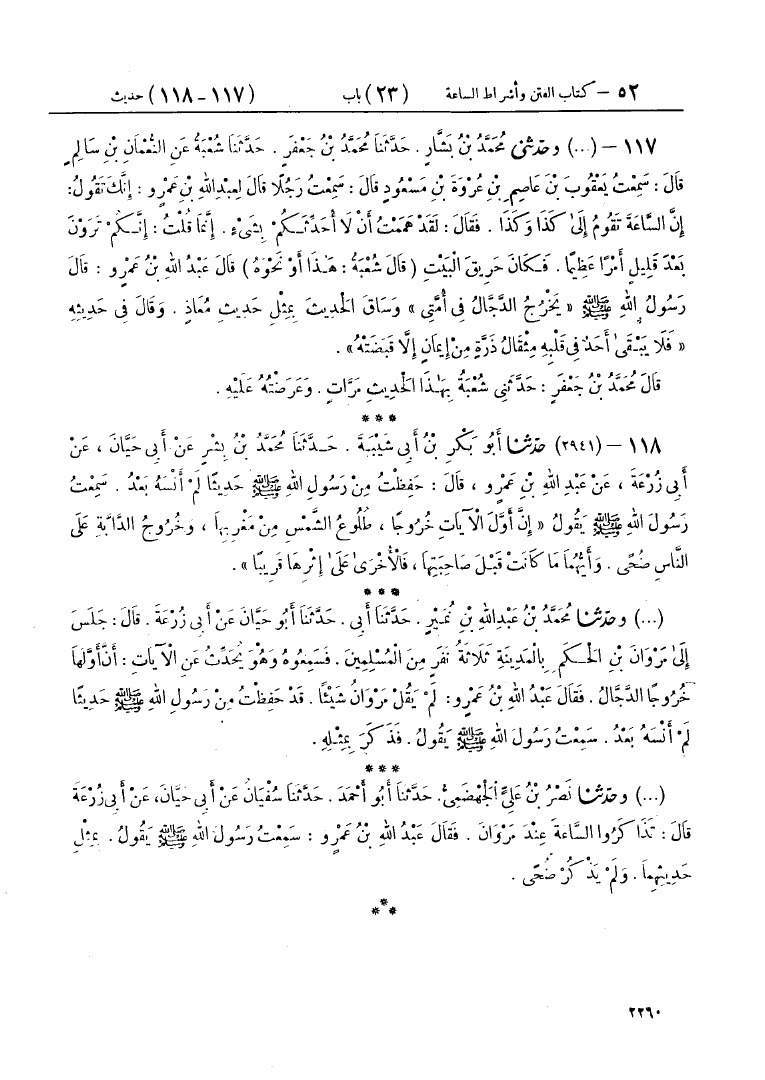 ٥٢ – كتاب الفتن وأشراط الساعة (٢٣) باب (١١٧ – ١١٨) حديث
١١٧ – (...) وحَدَّثَنِي مُحَمَّدُ بْنُ بَشَّارٍ . حَدَّثَنَا مُحَمَّدُ بْنُ جَعْفَرٍ . حَدَّثَنَا شُعْبَةُ عَنِ النُّعْمَانِ بْنِ سَالِمٍ
قَالَ : سَمِعْتُ يَعْقُوبَ بْنَ عَاصِمِ بْنِ عُرْوَةَ بْنِ مَسْعُودٍ قَالَ : سَمِعْتُ رَجُلًا قَالَ لِعَبْدِ اللهِ بْنِ عَمْرٍو : إِنَّكَ تَقُولُ :
إِنَّ السَّاعَةَ تَقُومُ إِلَىٰ كَذَا وَكَذَا . فَقَالَ : لَقَدْ هَمَمْتُ أَنْ لَا أُحَدِّثَكُمْ بِشَىْءٍ . إِنَّمَا قُلْتُ : إِنَّكُمْ تَرَوْنَ
بَعْدَ قَلِيلٍ أَمْرًا عَظِيمًا . فَكَانَ حَرِيقَ الْبَيْتِ ( قَالَ شُعْبَةُ : هَٰذَا أَوْ نَحْوَهُ ) قَالَ عَبْدُ اللهِ بْنُ عَمْرٍو : قَالَ
رَسُولُ اللهِ ﷺ « يَخْرُجُ الدَّجَّالُ فِى أُمَّتِى » وَسَاقَ الْحَدِيثَ بِمِثْلِ حَدِيثِ مُعَاذٍ . وَقَالَ فِى حَدِيثِهِ
« فَلَا يَبْقَىٰ أَحَدٌ فِى قَلْبِهِ مِثْقَالُ ذَرَّةٍ مِنْ إِيمَانٍ إِلَّا قَبَضَتْهُ» .
قَالَ مُحَمَّدُ بْنُ جَعْفَرٍ : حَدَّثَنِى شُعْبَةُ بِهَٰذَا الْحَدِيثِ مَرَّاتٍ . وَعَرَضْتُهُ عَلَيْهِ .
***
١١٨ – (٢٩٤١) حَدَّثَنَا أَبُو بَكْرِ بْنُ أَبِى شَيْبَةَ . حَدَّثَنَا مُحَمَّدُ بْنُ بِشْرٍ عَنْ أَبِى حَيَّانَ ، عَنْ
أَبِى زُرْعَةَ ، عَنْ عَبْدِ اللهِ بْنِ عَمْرٍو ، قَالَ : حَفِظْتُ مِنْ رَسُولِ اللهِ ﷺ حَدِيثًا لَمْ أَنْسَهُ بَعْدُ . سَمِعْتُ
رَسُولَ اللهِ ﷺ يَقُولُ « إِنَّ أَوَّلَ الْآيَاتِ خُرُوجًا ، طُلُوعُ الشَّمْسِ مِنْ مَغْرِبِهَا ، وَخُرُوجُ الدَّابَّةِ عَلَى
النَّاسِ ضُحًى . وَأَيُّهُمَا مَا كَانَتْ قَبْلَ صَاحِبَتِهَا ، فَالْأُخْرَىٰ عَلَىٰ إِثْرِهَا قَرِيبًا » .
***
(...) وحَدَّثَنَا مُحَمَّدُ بْنُ عَبْدِ اللهِ بْنِ نُمَيْرٍ . حَدَّثَنَا أَبِى . حَدَّثَنَا أَبُو حَيَّانَ عَنْ أَبِى زُرْعَةَ . قَالَ : جَلَسَ
إِلَىٰ مَرْوَانَ بْنِ الْحَكَمِ بِالْمَدِينَةِ ثَلَاثَةُ نَفَرٍ مِنَ الْمُسْلِمِينَ . فَسَمِعُوهُ وَهُوَ يُحَدِّثُ عَنِ الْآيَاتِ : أَنَّ أَوَّلَهَا
خُرُوجًا الدَّجَّالُ . فَقَالَ عَبْدُ اللهِ بْنُ عَمْرٍو : لَمْ يَقُلْ مَرْوَانُ شَيْئًا . قَدْ حَفِظْتُ مِنْ رَسُولِ اللهِ ﷺ حَدِيثًا
لَمْ أَنْسَهُ بَعْدُ . سَمِعْتُ رَسُولَ اللهِ ﷺ يَقُولُ . فَذَكَرَ بِمِثْلِهِ .
***
(...) وحَدَّثَنَا نَصْرُ بْنُ عَلِىٍّ الْجَهْضَمِىُّ . حَدَّثَنَا أَبُو أَحْمَدَ . حَدَّثَنَا سُفْيَانُ عَنْ أَبِى حَيَّانَ ، عَنْ أَبِى زُرْعَةَ
قَالَ : تَذَاكَرُوا السَّاعَةَ عِنْدَ مَرْوَانَ . فَقَالَ عَبْدُ اللهِ بْنُ عَمْرٍو : سَمِعْتُ رَسُولَ اللهِ ﷺ يَقُولُ . بِمِثْلِ
حَدِيثِهِمَا . وَلَمْ يَذْكُرْ ضُحًى .
***
٢٢٦٠